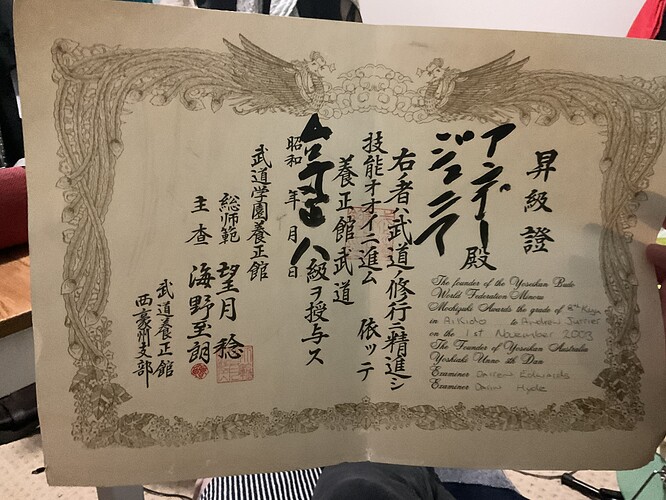 昇級證
アンデー殿
ジュニア
右ノ者ハ武道ノ修行ニ精進シ
技能オオイニ進ム 依ッテ
養正館武道
八級ヲ授与ス
昭和 年 月 日
武道学園養正館
総師範 望月 稔
主査 海野至朗
武道養正館
西豪州支部
The founder of the Yoseikan Budo
World Federation Minoru
Mochizuki Awards the grade of 8th Kyu
in Aikido to Andrew
on the 1st November 2003
The Founder of Yoseikan Australia
Yoshiaki Unno Dan
Examiner Darren Edwards
Examiner Dawn Hyde